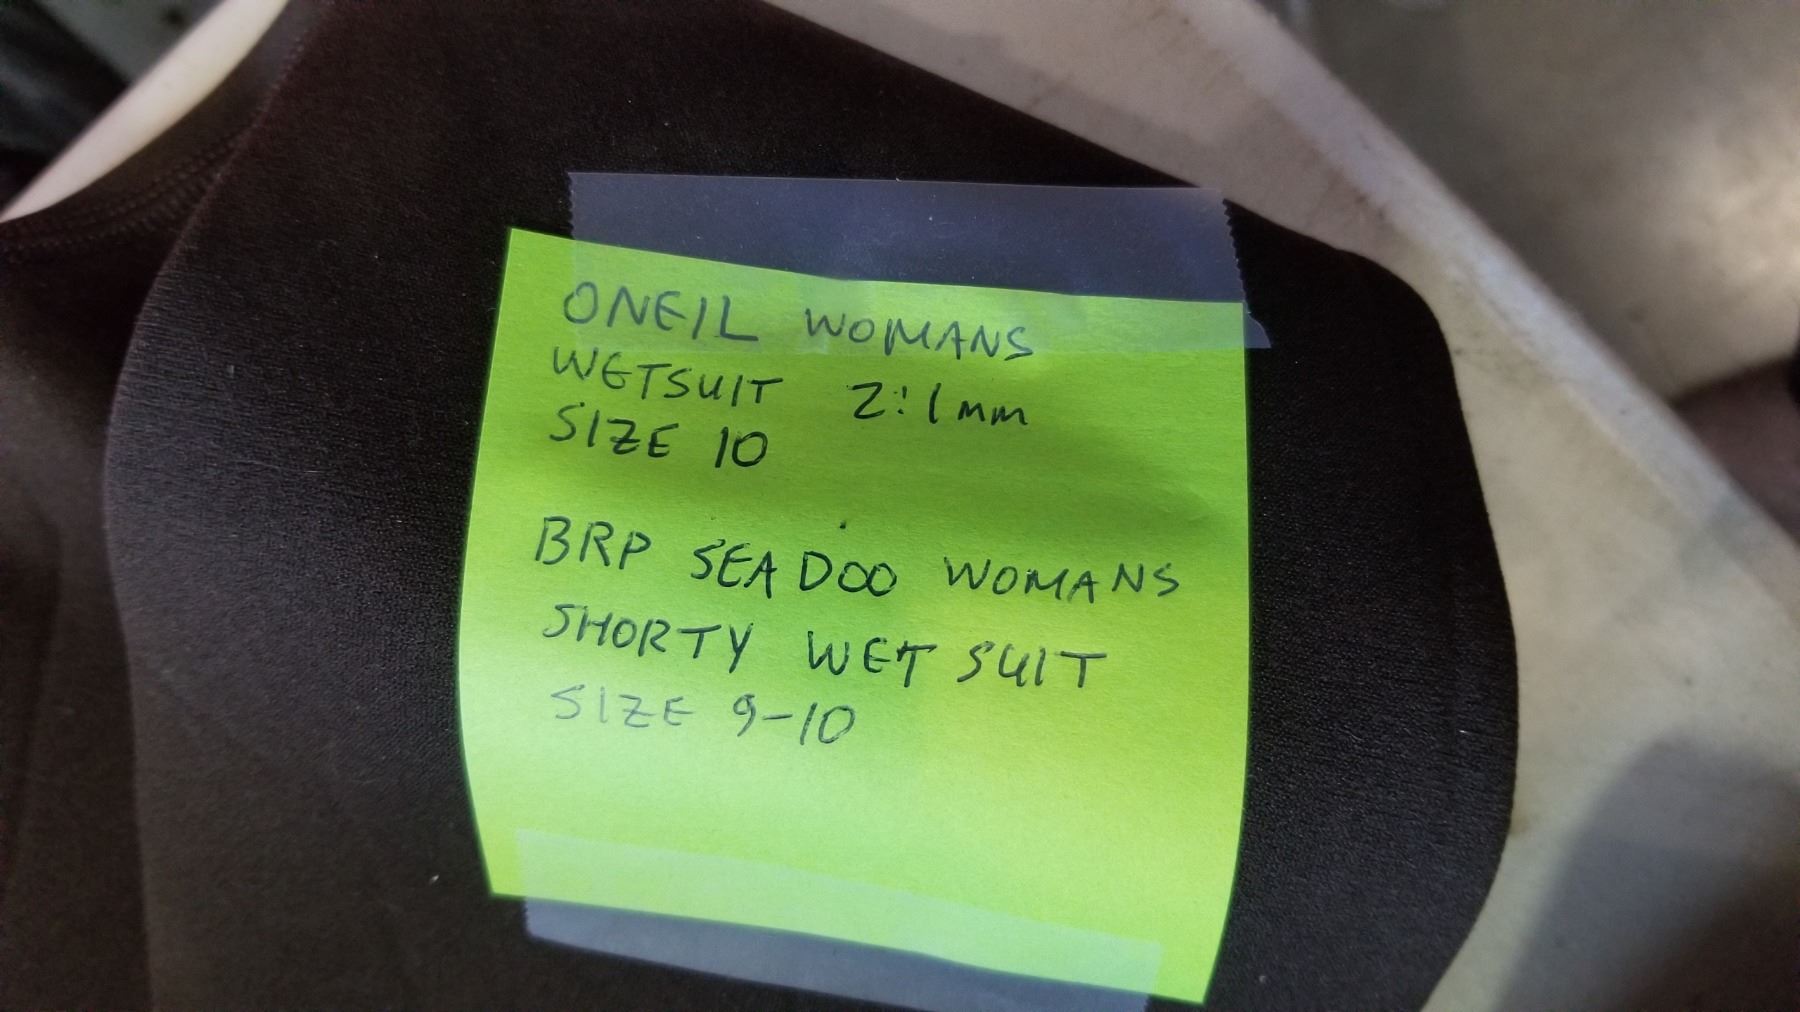 ONEIL WOMANS
WETSUIT 2:1mm
SIZE 10
BRP SEA DOO WOMANS
SHORTY WET SUIT
SIZE 9-10